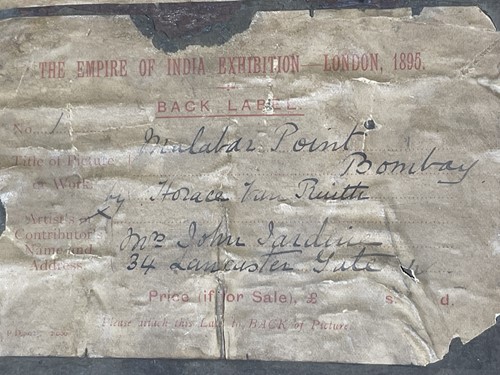 THE EMPIRE OF INDIA EXHIBITION LONDON, 1895.
BACK LABEL.
No. 1
Title of Picture Malabar Point
or Work Bombay
by Horace Van Ruith
Artist's
Contributor's Mrs John Jardine
Name and 34 Lancaster Gate
Address
Price (if for Sale), £ s. d.
Please attach this Label to BACK of Picture.